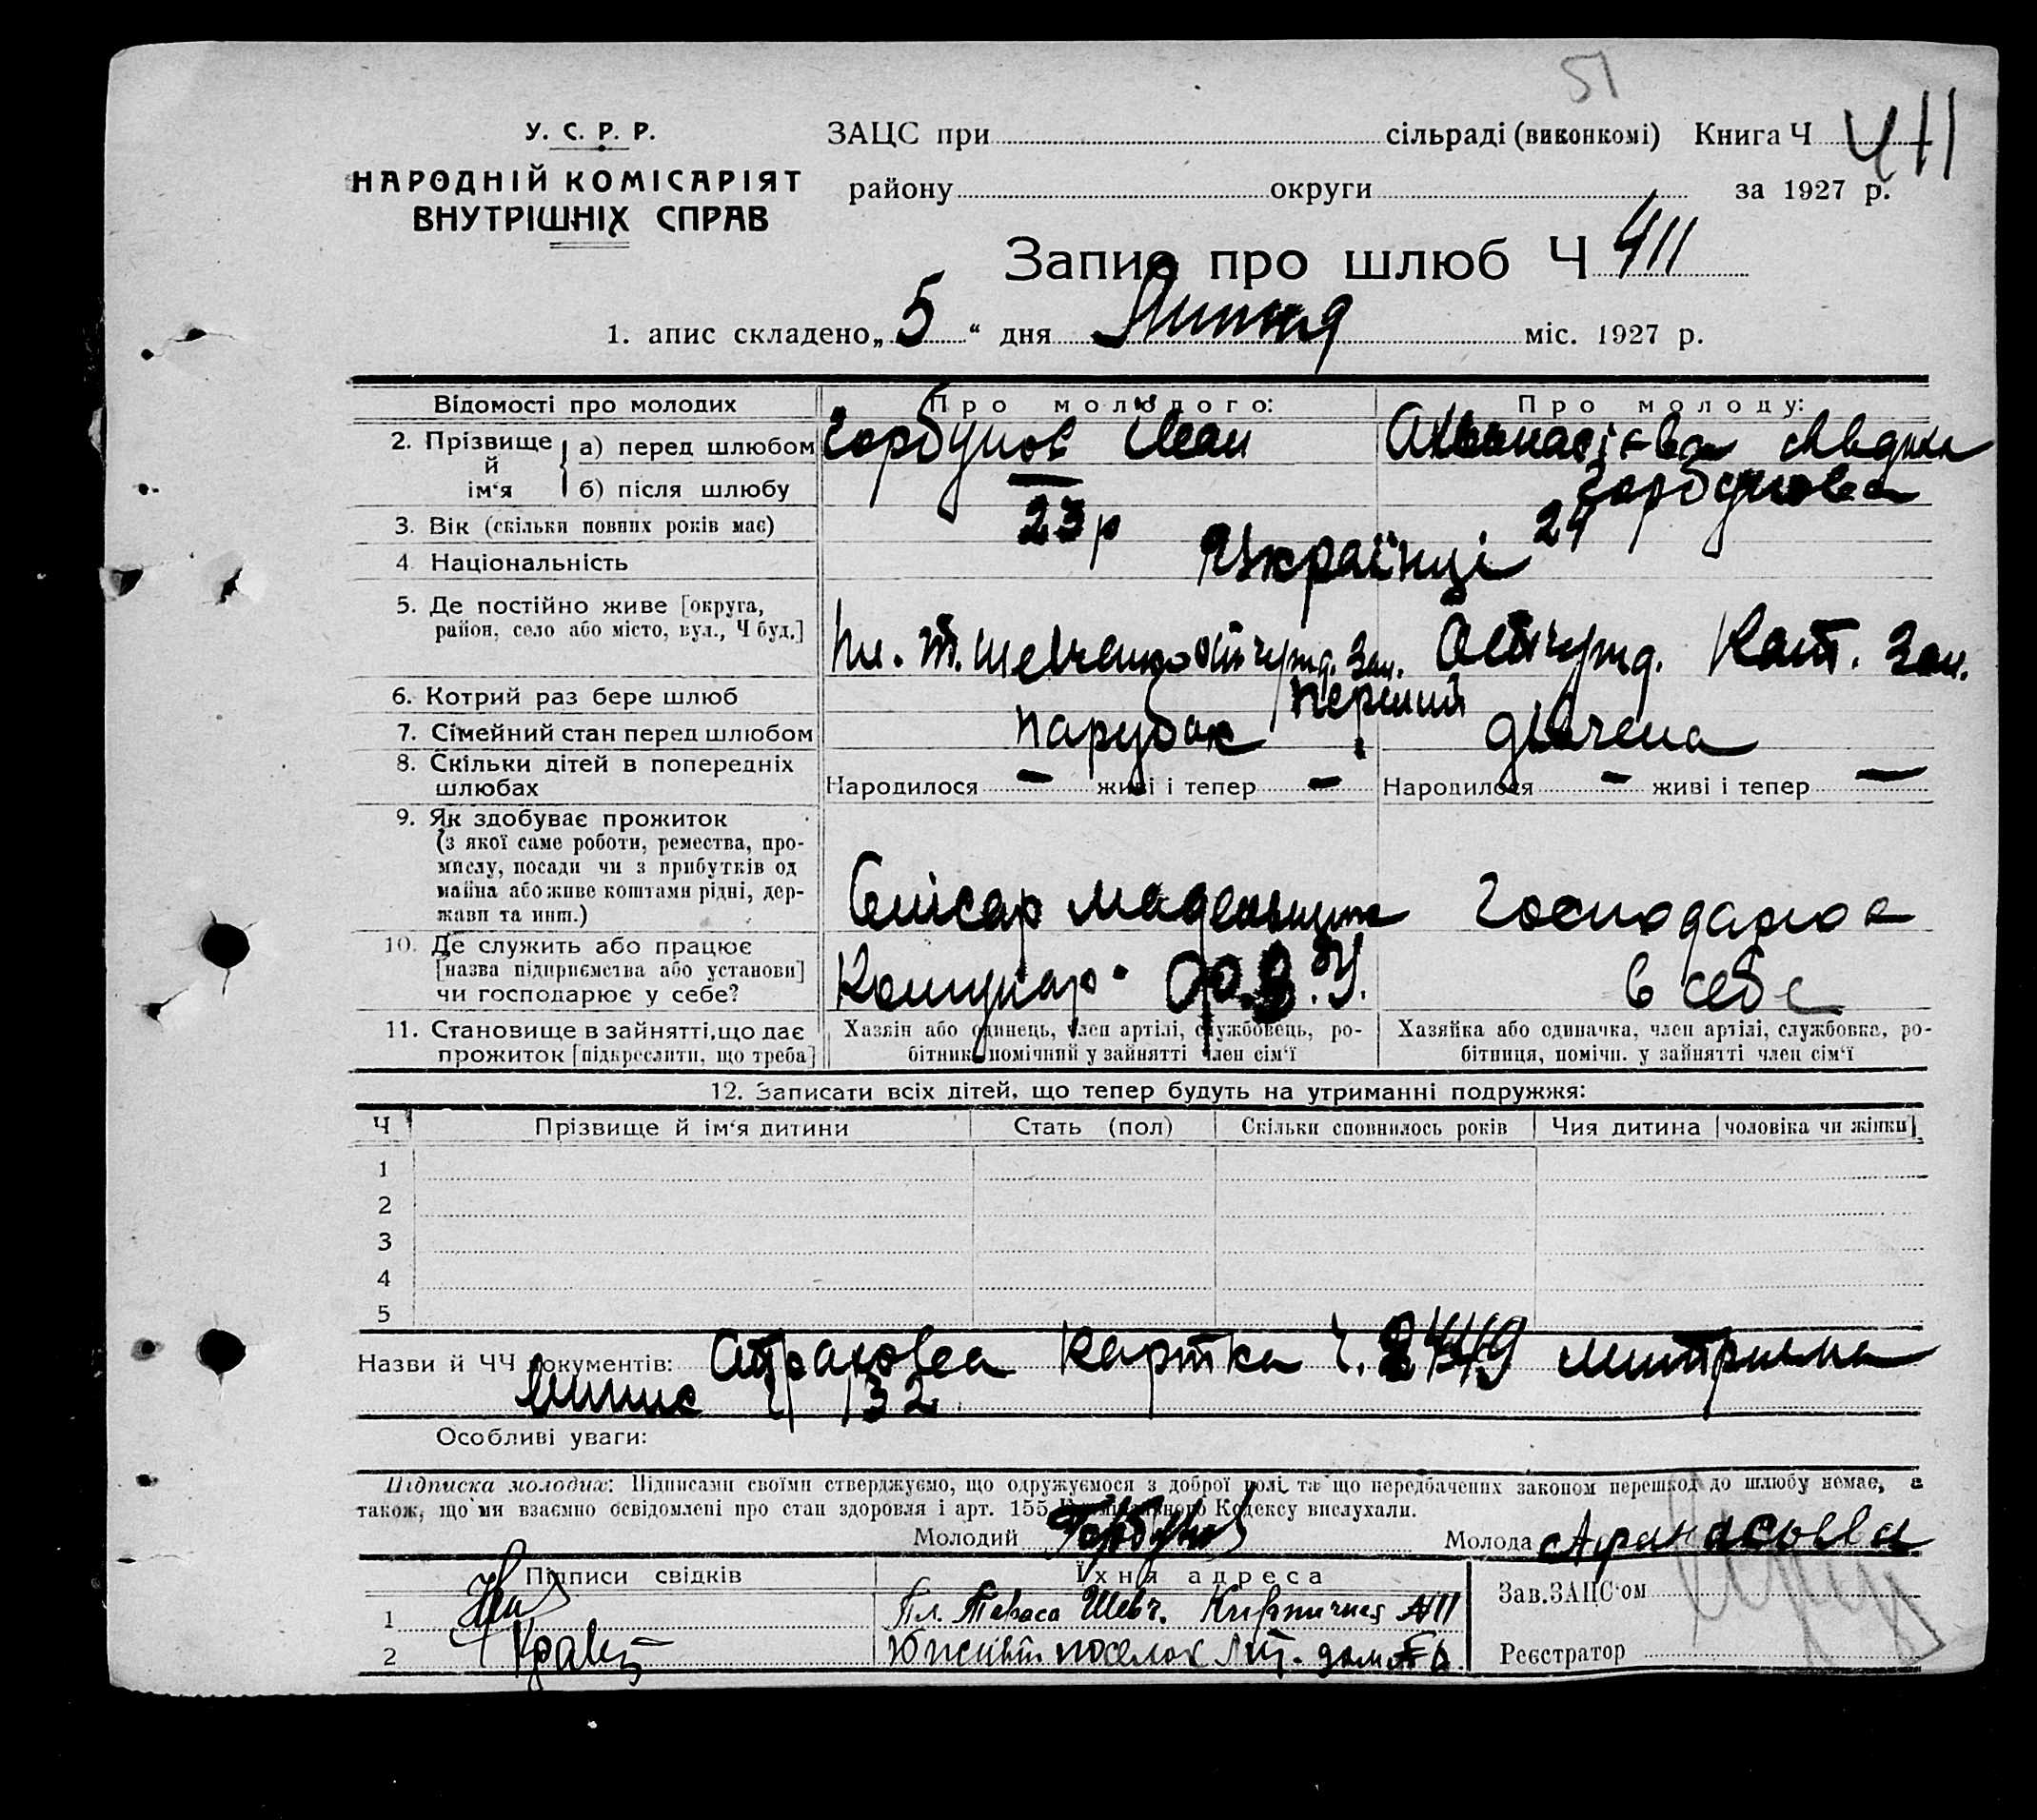 51
У. С. Р. Р.
НАРОДНІЙ КОМІСАРІЯТ
ВНУТРІШНІХ СПРАВ
ЗАЦС при сільраді (виконкомі) Книга Ч 411
району округи за 1927 р.
Запис про шлюб Ч 411
1. апис складено „ 5 “ дня Липня міс. 1927 р.
Відомості про молодих Про молодого: Про молоду:
2. Прізвище й ім‘я а) перед шлюбом Горбунов Іван Афанасієва
б) після шлюбу — Горбунова
3. Вік (скільки повних років має) 23 р 24
4. Національність Українці
5. Де постійно живе [округа,
район, село або місто, вул., Ч буд.] Пл. Т. Шевченко Отчужд. Зал. Отчужд. Кат. Зал.
6. Котрий раз бере шлюб Перший
7. Сімейний стан перед шлюбом парубок дівчена
8. Скільки дітей в попередніх
шлюбах Народилося — живі і тепер — Народилося — живі і тепер —
9. Як здобуває прожиток
(з якої саме роботи, ремества, про-
мислу, посади чи з прибутків од
майна або живе коштами рідні, дер-
жави та инш.) Слісар Господарює
10. Де служить або працює
[назва підприємства або установи]
чи господарює у себе? Комунар в себе
11. Становище в зайнятті, що дає
прожиток [підкреслити, що треба]
Хазяін або одинець, член артілі, службовець, ро-
бітник помічний у зайнятті член сім‘ї
Хазяйка або одиначка, член артілі, службовка, ро-
бітниця, помічн. у зайнятті член сім‘ї
12. Записати всіх дітей, що тепер будуть на утриманні подружжя:
Ч Прізвище й ім‘я дитини Стать (пол) Скільки сповнилось років Чия дитина [чоловіка чи жінки]
1
2
3
4
5
Назви й ЧЧ документів: Страховва картка ч. метрична
Випис Ч 132
Особливі уваги:
Підписка молодих: Підписами своїми стверджуємо, що одружуємося з доброї волі та що передбачених законом перешкод до шлюбу немає, а
також, що ми взаємно освідомлені про стан здоровля і арт. 155 Кримінального Кодексу вислухали.
Молодий Горбунов Молода Афанасьева
Підписи свідків Їхня адреса Зав. ЗАЦС‘ом
1 Пл. Тараса Шевч. Кирпичная №11
2 Кравец поселок Реєстратор